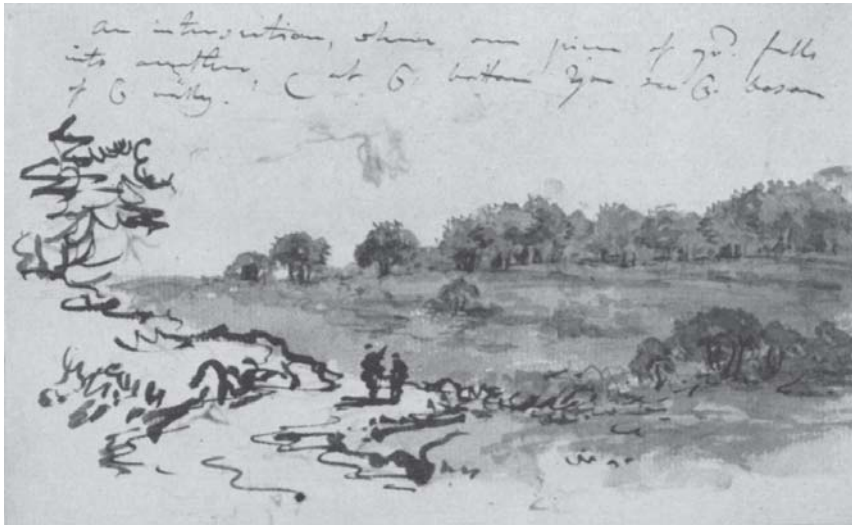 an intersection, where one piece of gd. falls
into another. at bottom you see bosom
of